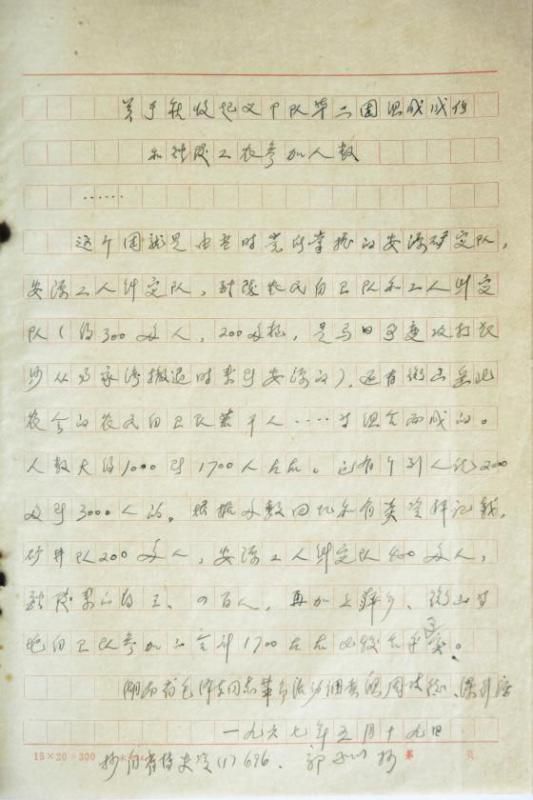 关于秋收起义部队第二团组成成份
和醴陵工农参加人数
……
这个团就是由当时党所掌握的安源矿定队，
安源工人纠定队，醴陵农民自卫队和工人纠定
队（约300多人，200多枪，是马日事变攻打长
沙从易家湾撤退时来到安源的），还有衡山岳北
农会的农民自卫队若干人……等组合而成的。
人数大约1000到1700人左右。也有个别人说200
0到3000人的。根据多数回忆和有关资料记载，
矿井队200多人，安源工人纠定队400多人，
醴陵来的约三、四百人，再加上萍乡、衡山等
地自卫队参加的合计1700左右比较合乎实。
湖南省毛泽东同志革命活动调查组周
一九六七年五月十九日
抄自省传史资(1)696．
15×20＝300
第 页